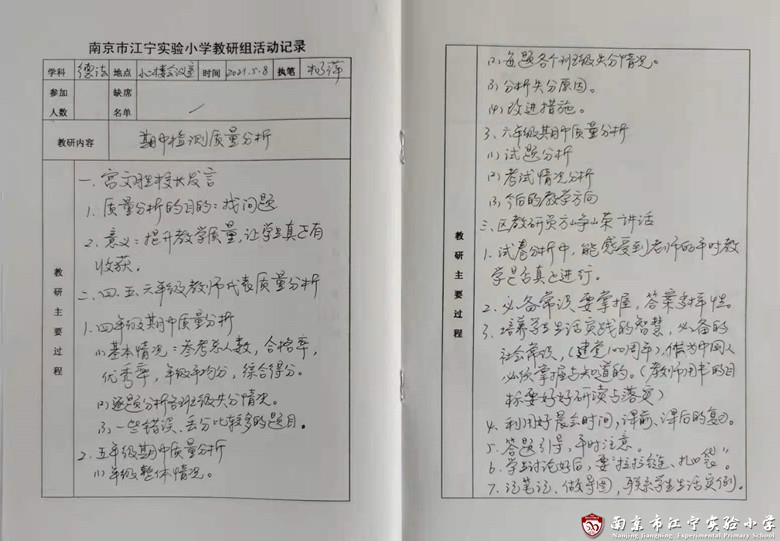 南京市江宁实验小学教研组活动记录
学科 德法 地点 北二楼会议室 时间 2021.5.8 执笔 杨萍
参加人数 缺席名单
教研内容 期中检测质量分析
教研主要过程
一.宫文胜校长发言
1.质量分析的目的：找问题
2.意义：提升教学质量，让学生真正有
收获。
二.四.五.六年级教师代表质量分析
1.四年级期中质量分析
(1)基本情况：参考总人数，合格率，
优秀率，年级平均分，综合得分。
(2)逐题分析各班级失分情况。
(3)一些错误、丢分比较多的题目。
2.五年级期中质量分析
(1)年级整体情况。
教研主要过程
(2)每题各个班级失分情况。
(3)分析失分原因。
(4)改进措施。
3.六年级期中质量分析
(1)试题分析
(2)考试情况分析
(3)今后的教学方向
三.区教研员方峥嵘讲话
1.试卷分析中，能感受到老师的平时教
学是否真正进行。
2.必备常识要掌握，答案多样性。
3.培养学生生活实践的智慧，必备的
社会常识，(建党100周年)，作为中国人
必须掌握与知道的。(教师用书的目
标要好好研读与落实)
4.利用好晨会时间，课前、课后的复习。
5.答题引导，平时注意。
6.学生讨论好后，要"拉拉链、扎口袋"。
7.记笔记、做导图，联系学生生活实例。
南京市江宁实验小学
Nanjing Jiangning Experimental Primary School